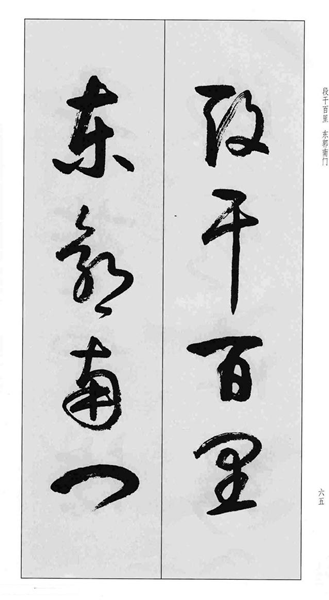 段干百里
东郭南门
段干百里 东郭南门
六五